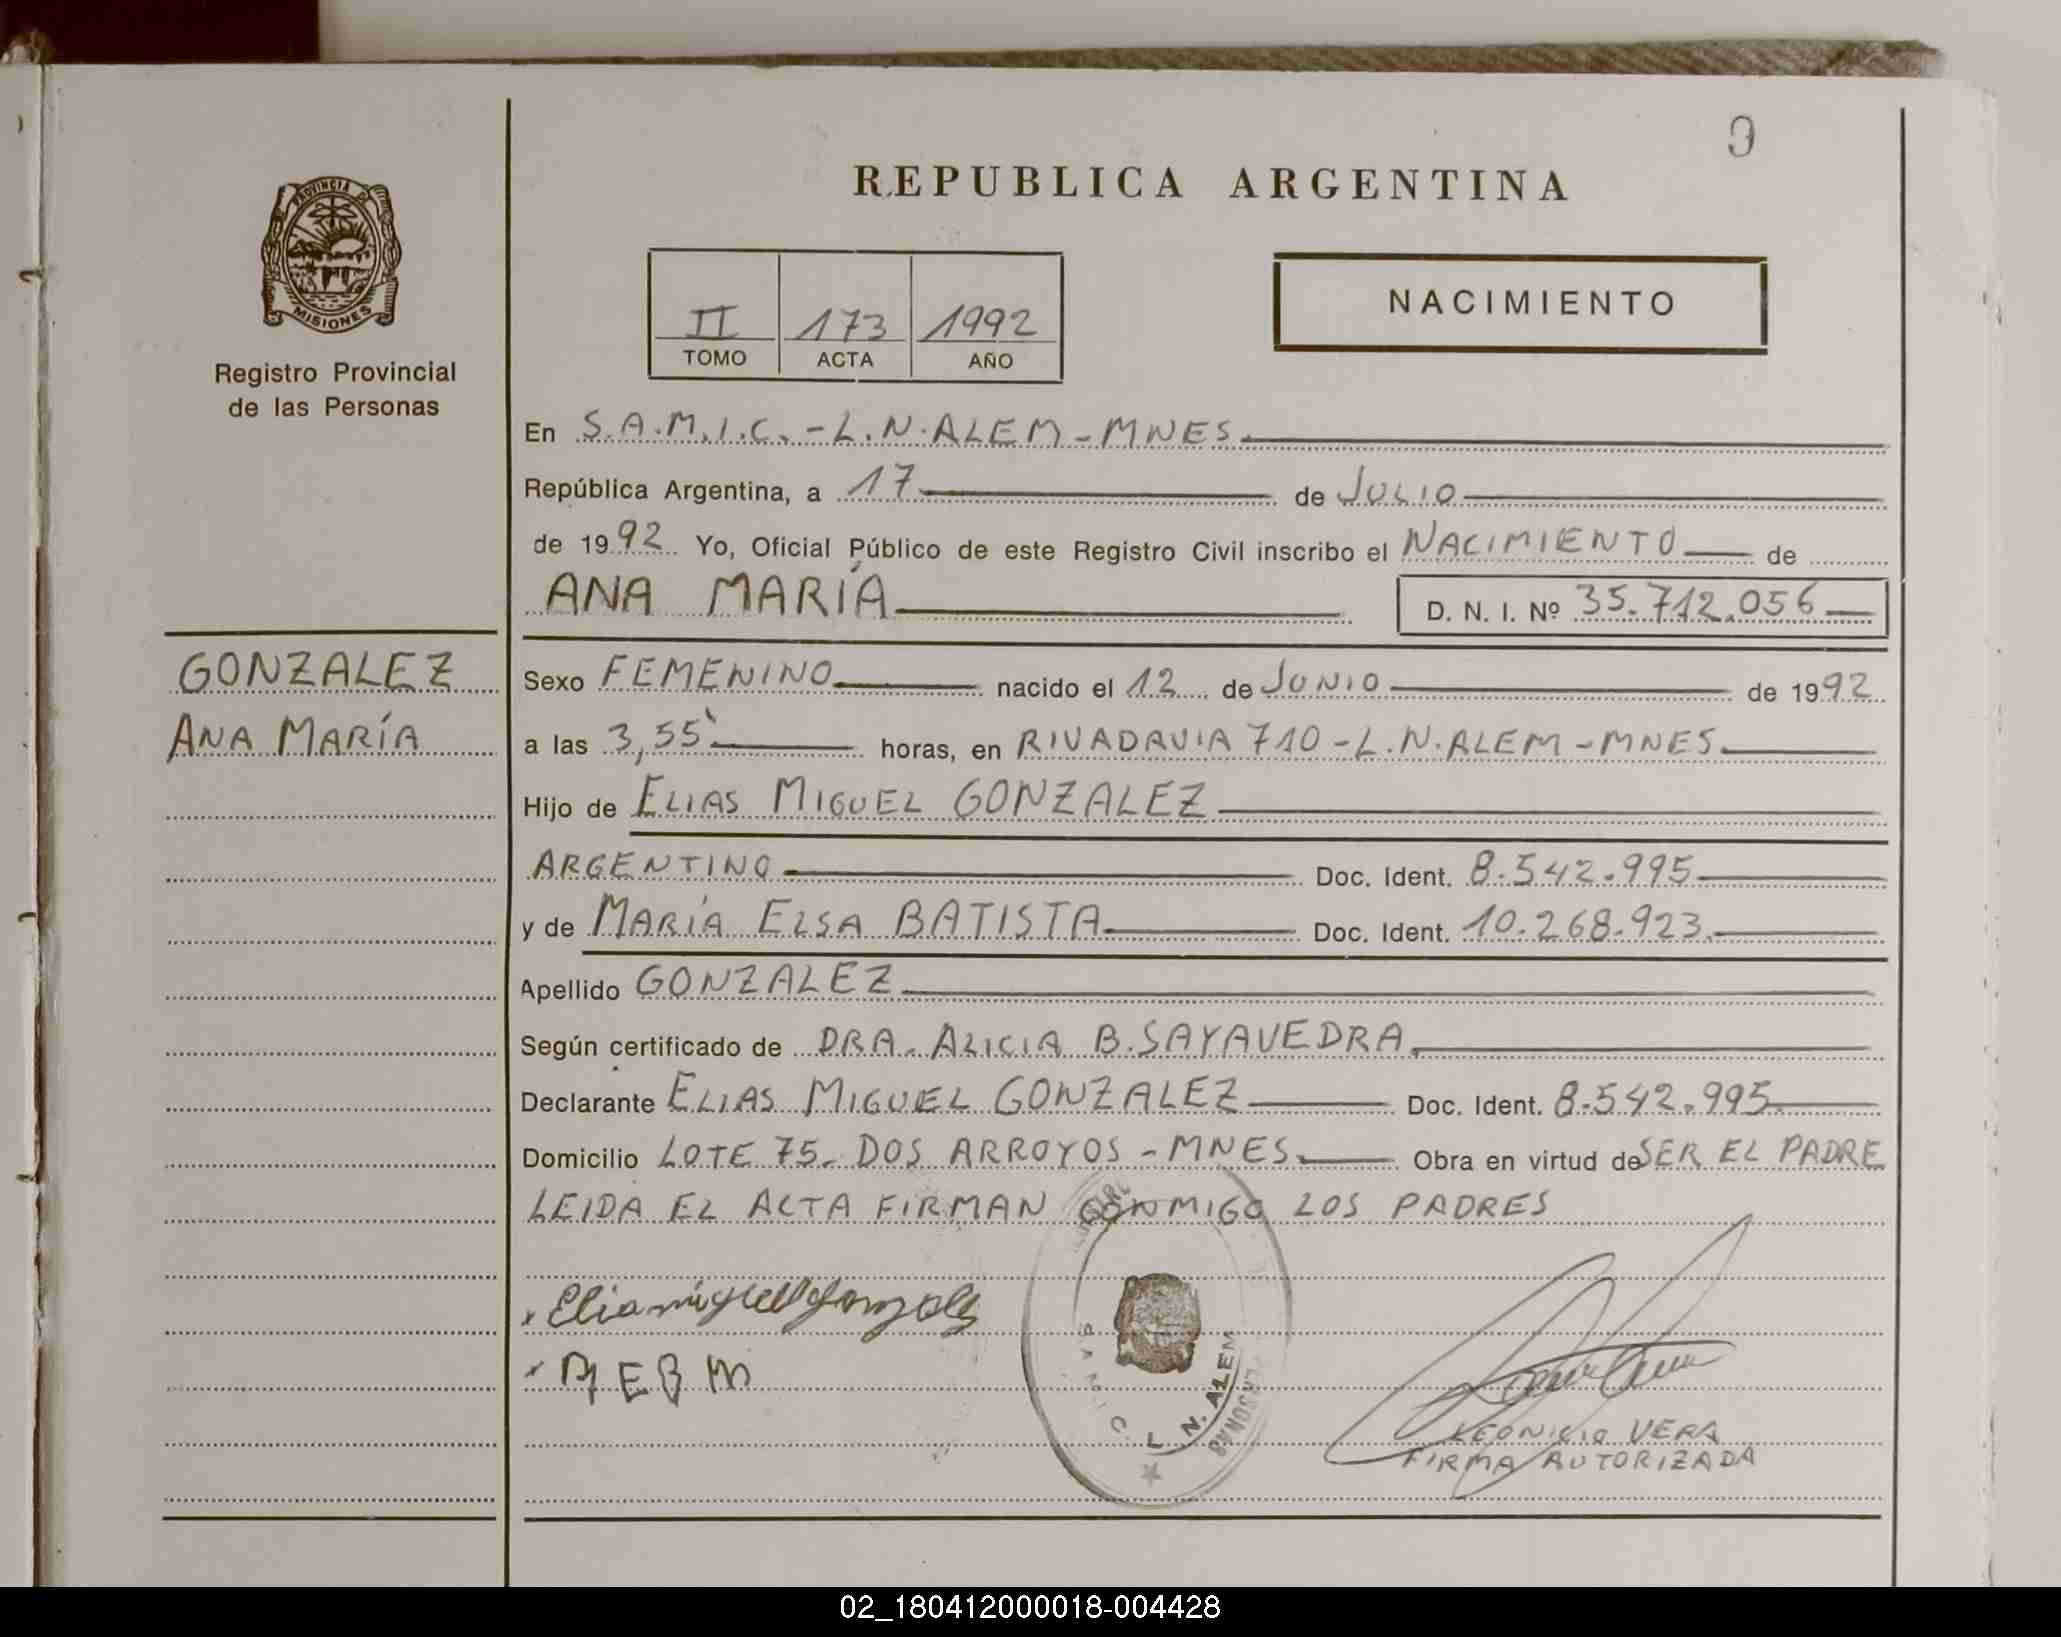 9
REPUBLICA ARGENTINA
PROVINCIA DE
MISIONES
Registro Provincial
de las Personas
II 173 1992
TOMO ACTA AÑO
NACIMIENTO
En S.A.M.I.C. - L.N. ALEM - MNES.
República Argentina, a 17 de JULIO
de 1992 Yo, Oficial Público de este Registro Civil inscribo el NACIMIENTO de
ANA MARÍA D. N. I. Nº 35.712.056
GONZALEZ
ANA MARÍA
Sexo FEMENINO nacido el 12 de JUNIO de 1992
a las 3,55` horas, en RIVADAVIA 710 - L.N. ALEM - MNES.
Hijo de ELIAS MIGUEL GONZALEZ
ARGENTINO Doc. Ident. 8.542.995
y de MARÍA ELSA BATISTA Doc. Ident. 10.268.923.
Apellido GONZALEZ
Según certificado de DRA. ALICIA B. SAYAVEDRA.
Declarante ELIAS MIGUEL GONZALEZ Doc. Ident. 8.542.995
Domicilio LOTE 75. DOS ARROYOS - MNES. Obra en virtud de SER EL PADRE
LEIDA EL ACTA FIRMAN CONMIGO LOS PADRES
Elia miguel gonzalez
M E B M
S.A.M.I.C. L. N. ALEM
PERSONAS
LEONICIO VERA
FIRMA AUTORIZADA
02_180412000018-004428